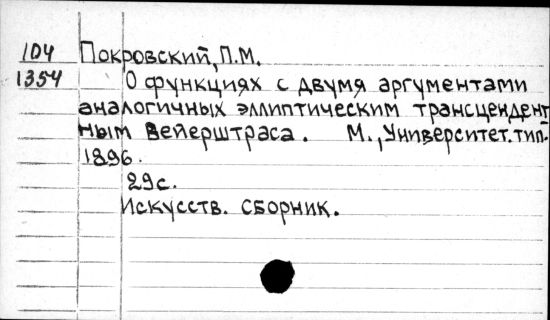 104 Покровский, П.М.
1354 О функциях с двумя аргументами
аналогичных эллиптическим трансцендент
ным Вейерштраса. М., Университет.тип.
1896.
29с.
Искусств. сборник.